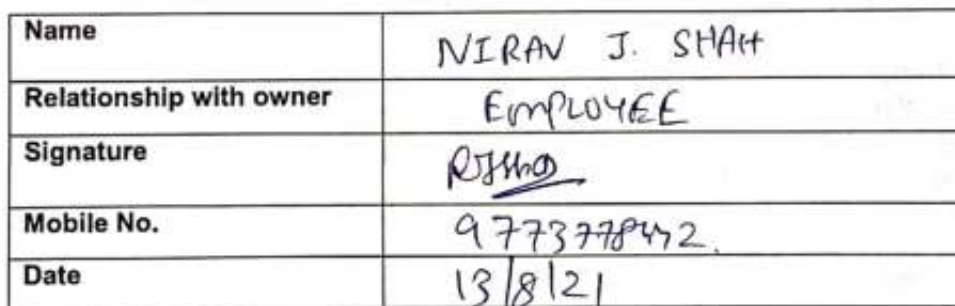 Name NIRAV J. SHAH
Relationship with owner EMPLOYEE
Signature
Mobile No. 9773778442.
Date 13/8/21